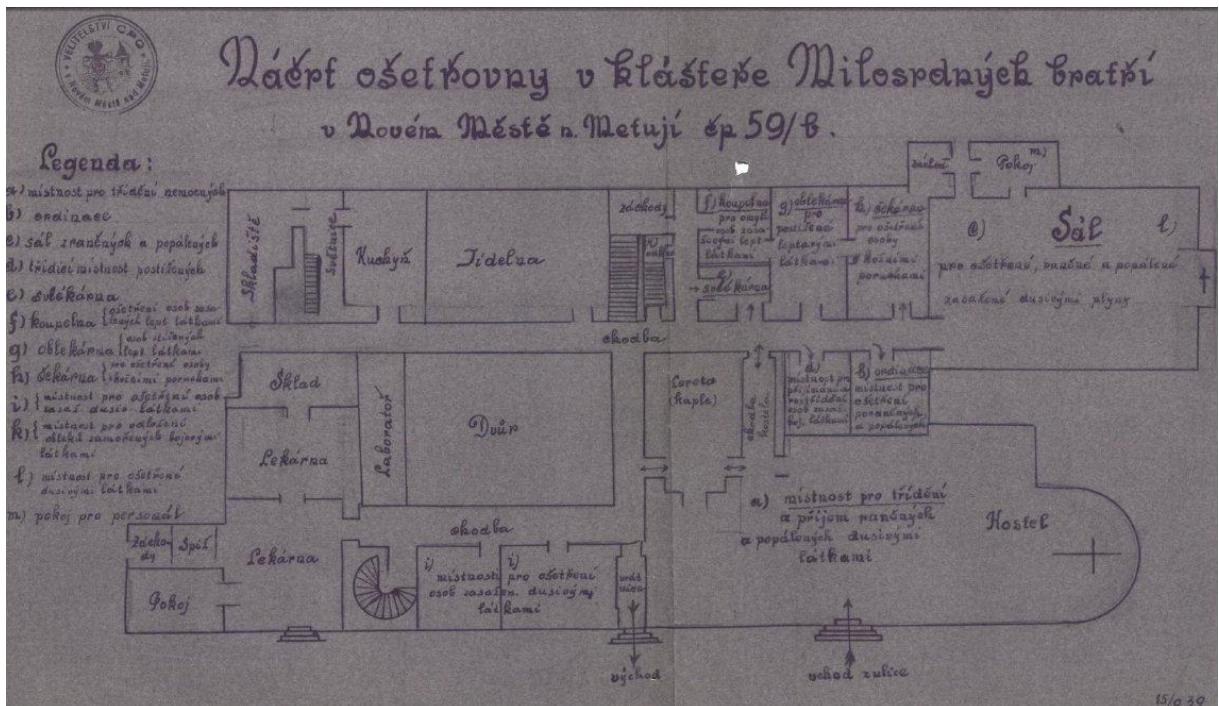 VELITELSTVÍ CPO
v Novém Městě nad Metují
Náčrt ošetřovny v klášteře Milosrdných bratří
v Novém Městě n. Metují čp 59/b.
Legenda:
a) místnost pro třídění nemocných
b) ordinace
c) sál zraněných a popálených
d) třídící místnost postižených
e) svlékárna
f) koupelna { ošetření osob zasa-
žených lept. látkami
g) oblékárna { osob
lept. látkami
h) čekárna { pro ošetřené osoby
i) { místnost pro ošetření osob
zasaž. dusiv. látkami
k) { místnost pro odložení
obleků zamořených bojovými
látkami
l) místnost pro ošetřené
dusivými látkami
m) pokoj pro personál
Skladiště
Světnice
Kuchyň
Jídelna
záchody
f) koupelna
pro omytí
osob zasa-
žených lept.
látkami
e)
svlékárna
g) oblékárna
pro
postižené
leptavými
látkami
h) čekárna
pro ošetřené
osoby
poruchami
Pokoj
m)
c)
Sál
l)
pro ošetřené, raněné a popálené
zasažené dusivými plyny
chodba
Sklad
Lékárna
Laboratoř
Dvůr
Loreta
(kaple)
chodba
kostela
d)
místnost pro
přijímání a
roztřídění
osob zasaž.
boj. látkami
b) ordinace
místnost pro
ošetření
poraněných
a popálených
chodba
a) místnost pro třídění
a příjem raněných
a popálených dusivými
látkami
Kostel
Zácho-
dy
Spíž
Lékárna
Pokoj
i) i)
místnosti pro ošetření
osob zasažen. dusivými
látkami
vrát
nice
východ
vchod z ulice